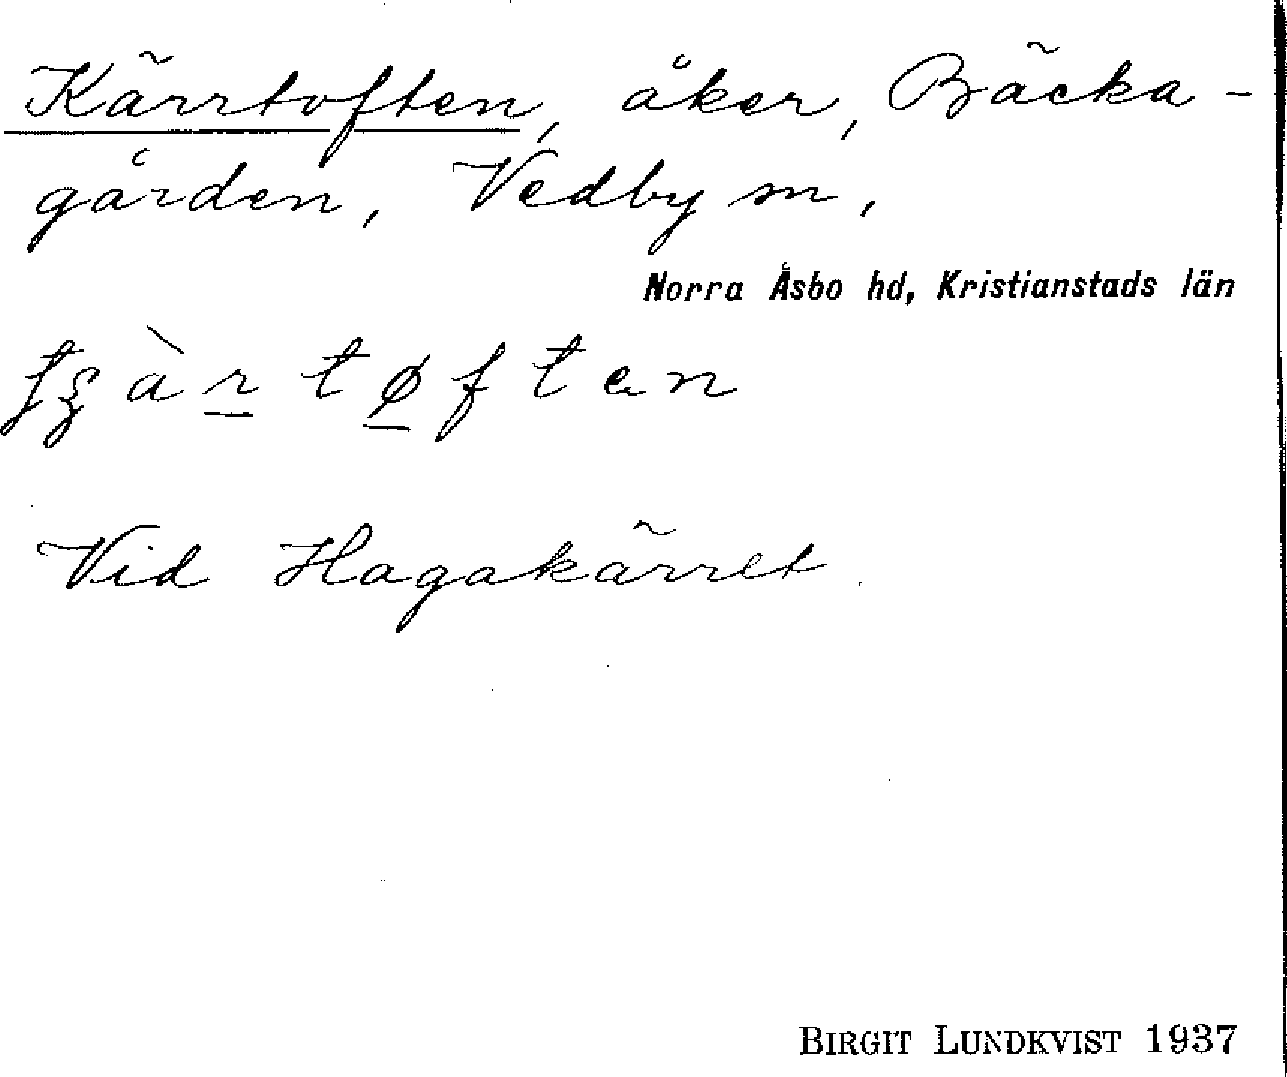 Kärrtoften, åker, Bäcka-
gården, Vedby sn,
Norra Åsbo hd, Kristianstads län
Vid Hagakärret.
BIRGIT LUNDKVIST 1937